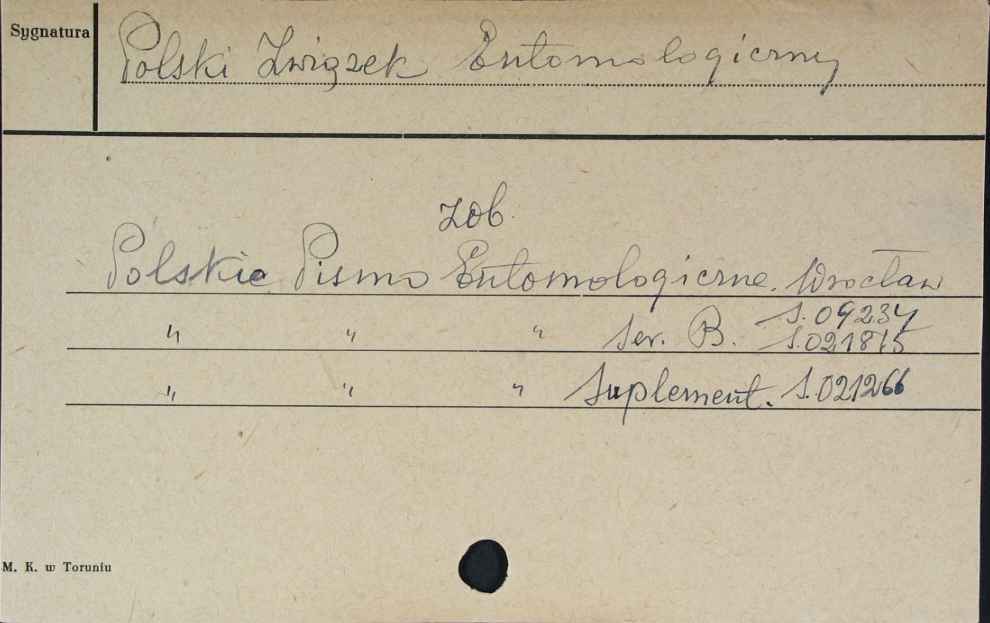 Sygnatura
Polski Związek Entomologiczny
zob.
Polskie Pismo Entomologiczne. Wrocław
S. 09234
" " " Ser. B. S. 021815
" " " Suplement. S. 021266
M. K. w Toruniu